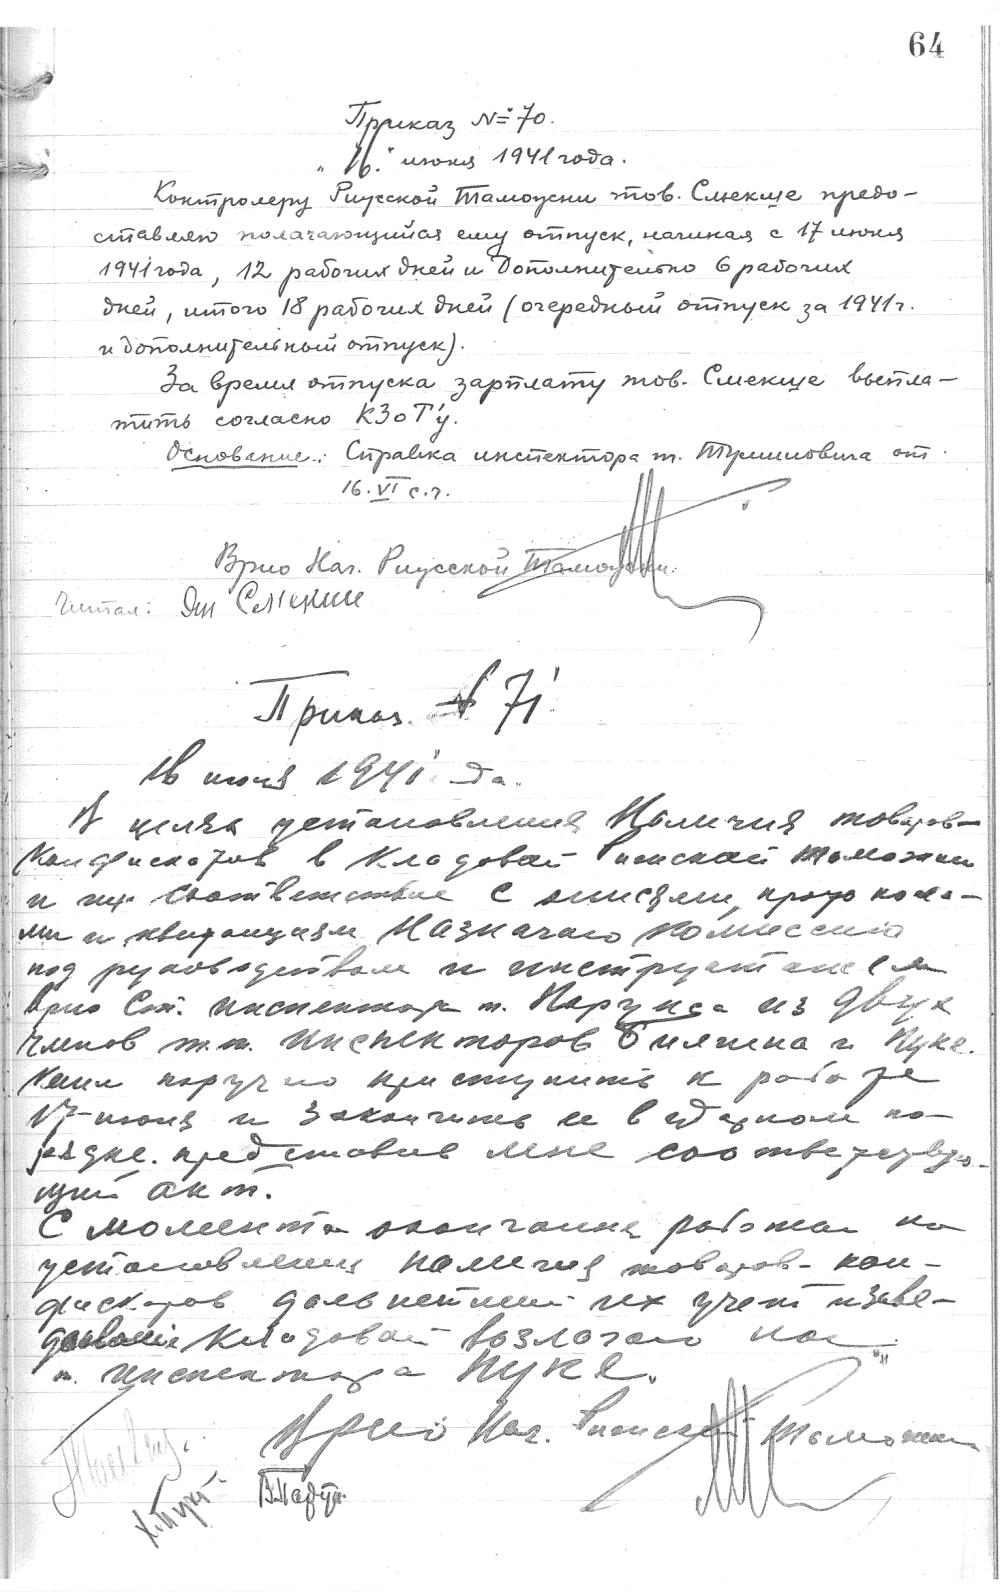 64
Приказ № 70.
"16." июня 1941 года.
Контролеру Рижской Таможни тов. Смекше предо-
ставляю полагающийся ему отпуск, начиная с 17 июня
1941 года, 12 рабочих дней и дополнительно 6 рабочих
дней, итого 18 рабочих дней (очередный отпуск за 1941 г.
и дополнительный отпуск).
За время отпуска зарплату тов. Смекше выпла-
тить согласно КЗоТ'у.
Основание: Справка инспектора т. от
16.VI с.г.
Врио Нач. Рижской Таможни.
Читал:
Приказ № 71
16 июня 1941 года.
В целях установления наличия товаров-
конфискатов в кладовой Рижской таможни
и их соответствие с описями, протокола-
ми и квитанциям назначаю комиссию
под руководством и
Врио Ст. инспектора т. Парупса из двух
членов т.т. инспекторов и Пуке.
поручаю приступить к работе
17 июня и закончить ее в ударном по-
рядке, представив мне соответствую-
щий акт.
С момента окончания работы по
установлению наличия товаров-кон-
фискатов дальнейший их учет и заве-
дование кладовой возлагаю на
т. инспектора Пуке.
Врио Нач. Рижской Таможни